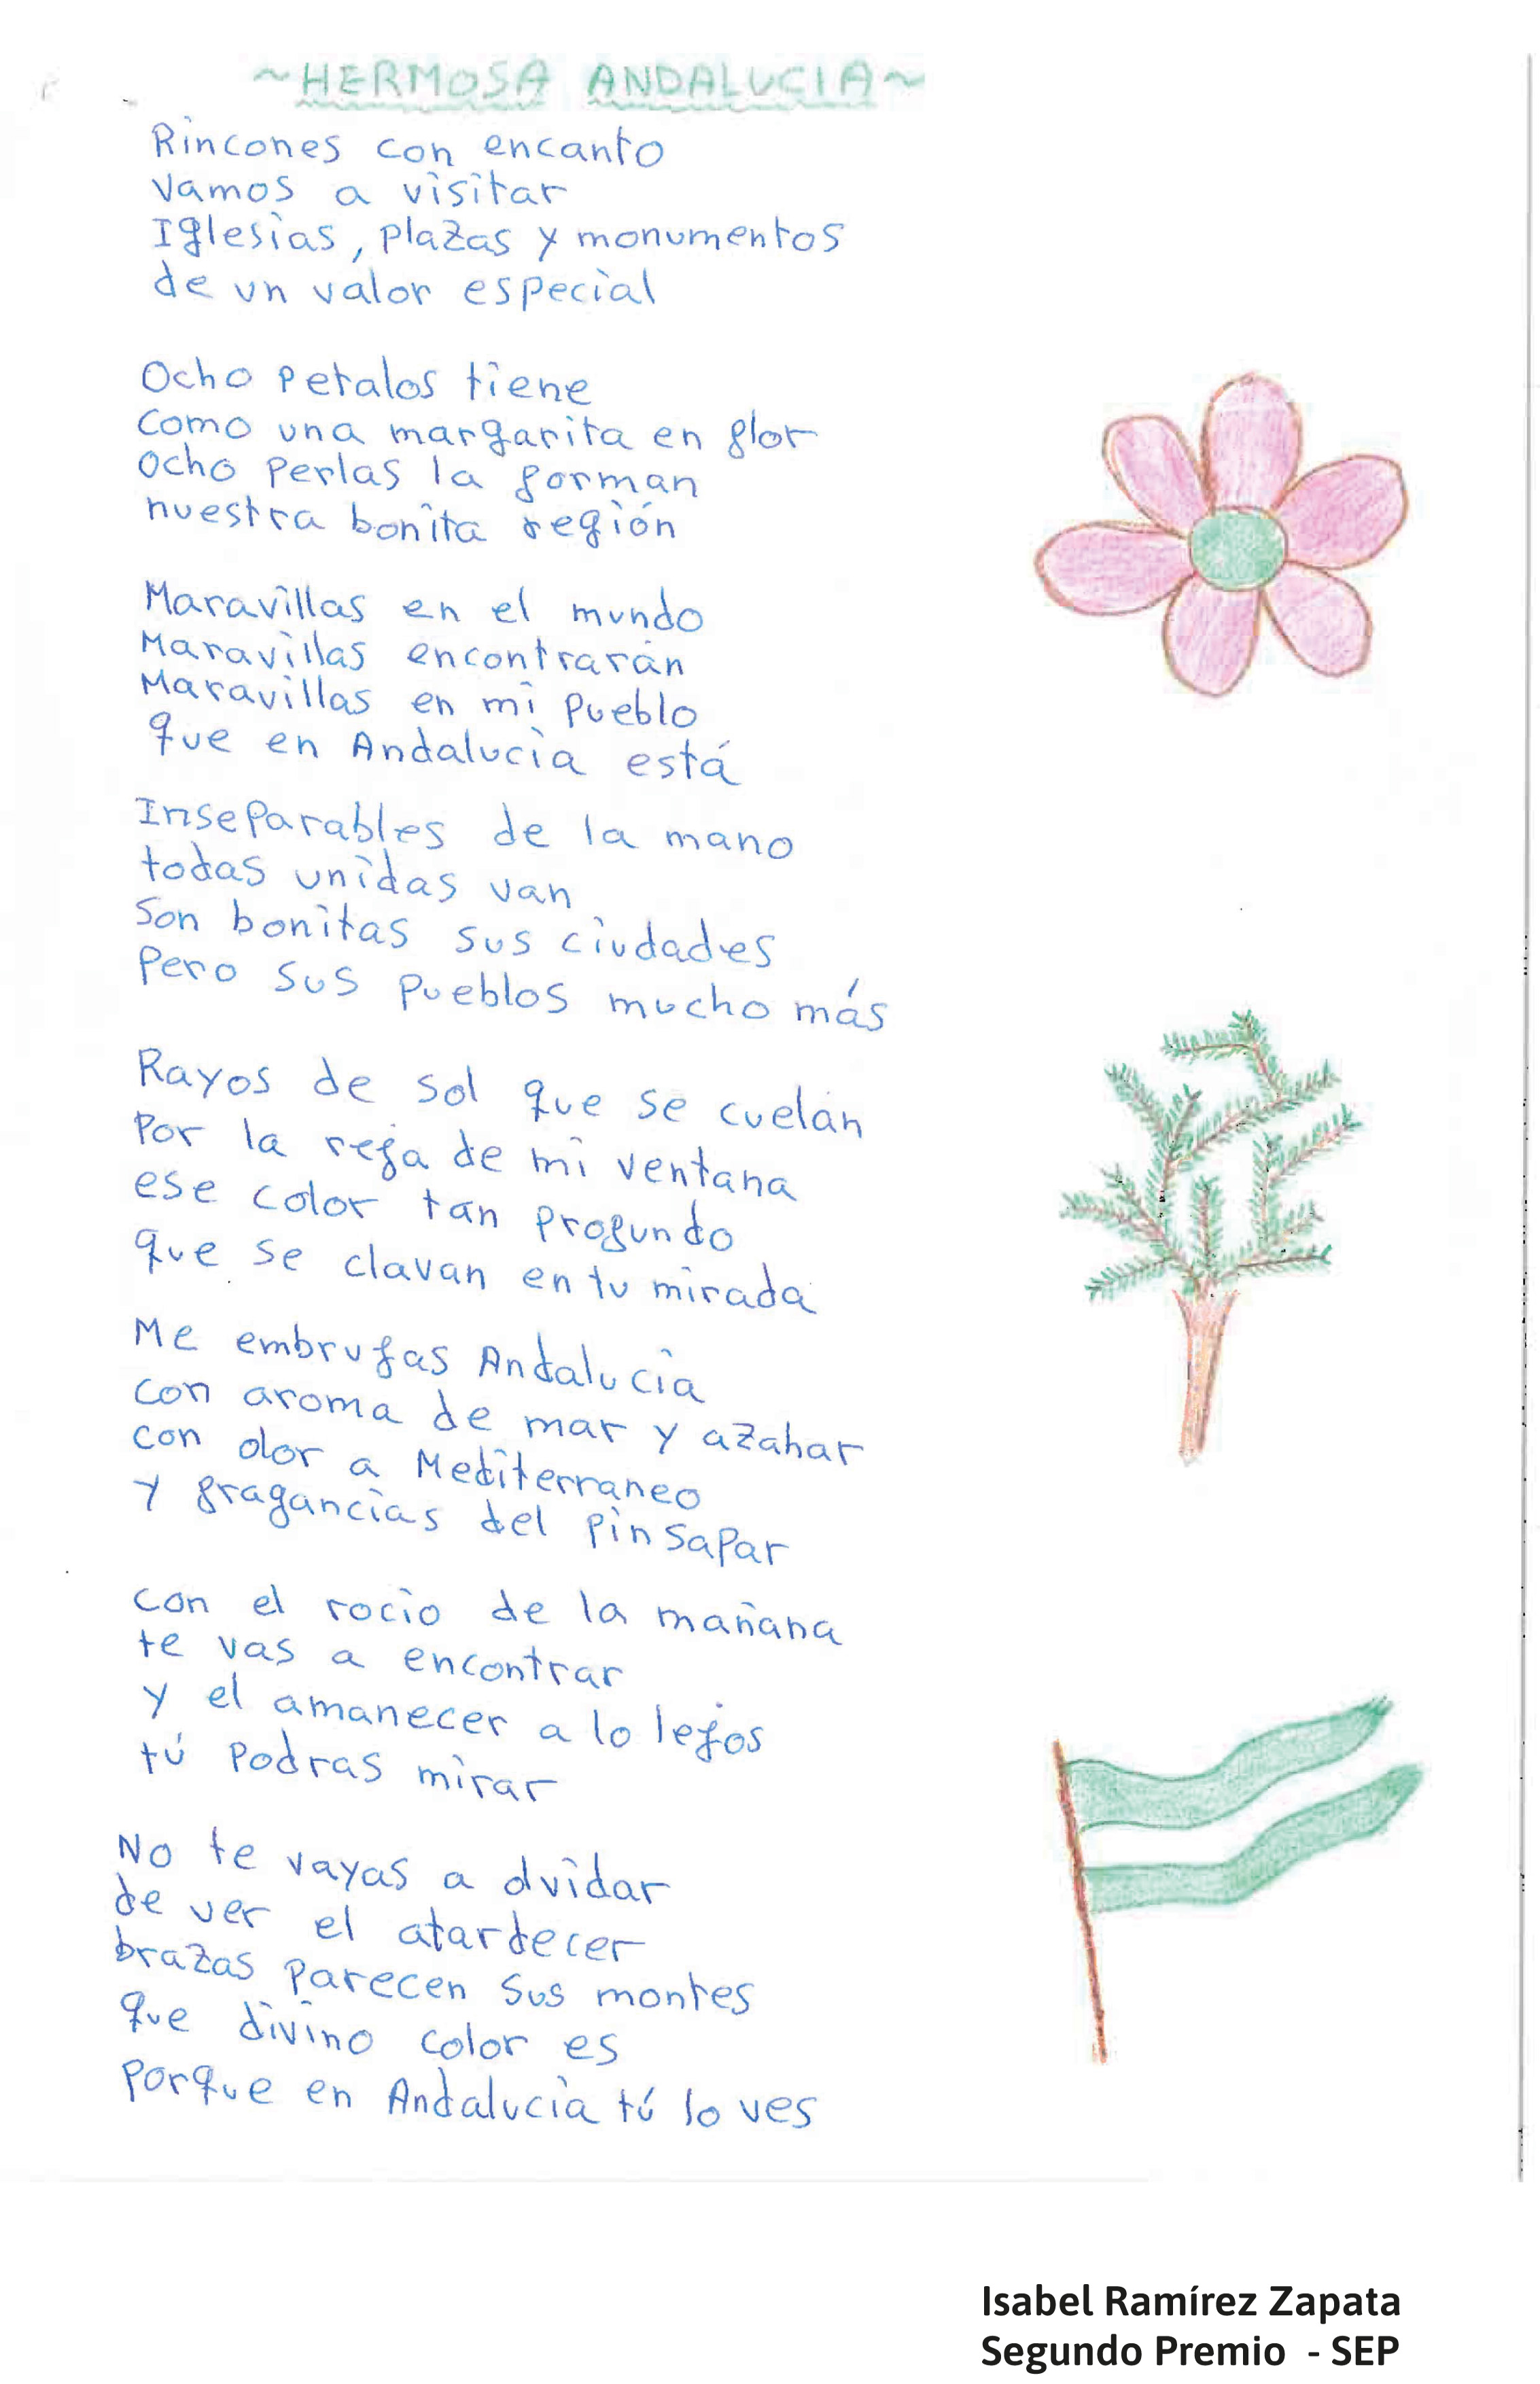 ~HERMOSA ANDALUCIA~
Rincones con encanto
Vamos a visitar
Iglesias, plazas y monumentos
de un valor especial
Ocho petalos tiene
Como una margarita en flor
Ocho perlas la forman
nuestra bonita región
Maravillas en el mundo
Maravillas encontrarán
Maravillas en mi pueblo
que en Andalucia está
Inseparables de la mano
todas unidas van
Son bonitas sus ciudades
Pero sus pueblos mucho más
Rayos de sol que se cuelan
Por la reja de mi ventana
ese color tan profundo
que se clavan en tu mirada
Me embrujas Andalucia
con aroma de mar y azahar
con olor a Mediterraneo
y fragancias del pinsapar
Con el rocio de la mañana
te vas a encontrar
y el amanecer a lo lejos
tú podras mirar
No te vayas a olvidar
de ver el atardecer
brazas parecen sus montes
que divino color es
porque en Andalucia tú lo ves
Isabel Ramírez Zapata
Segundo Premio - SEP